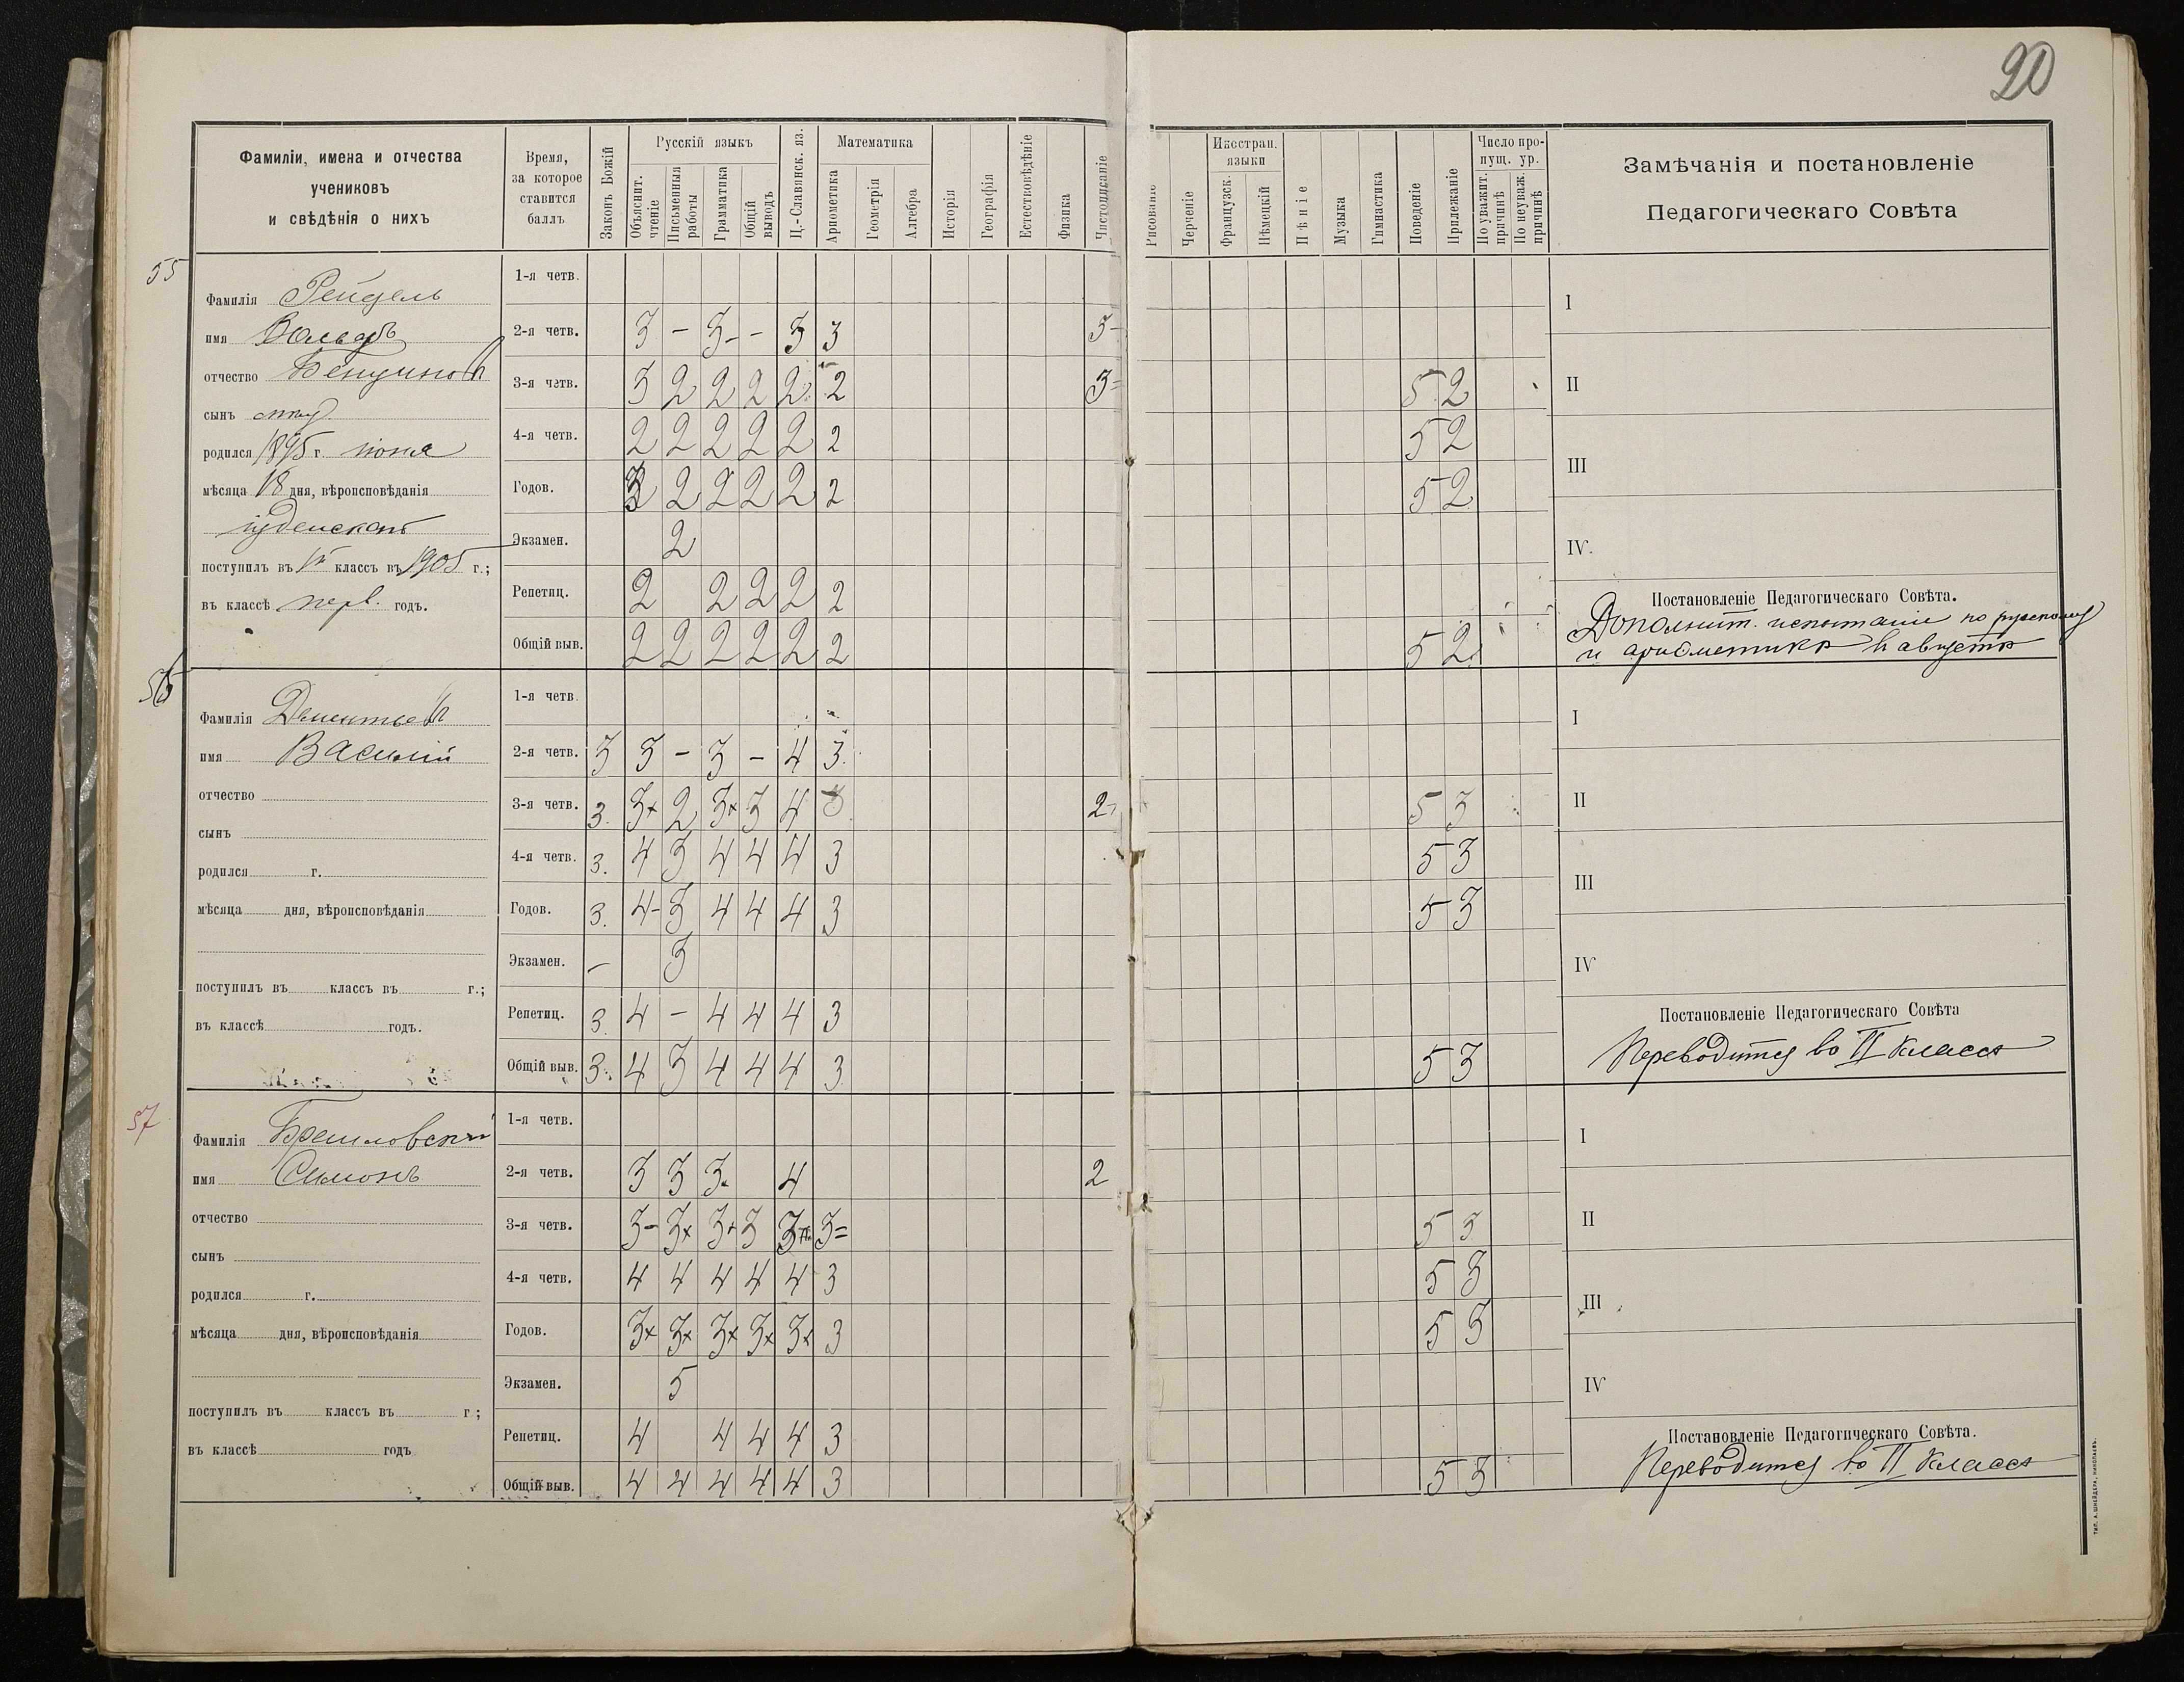 20
Фамиліи, имена и отчества
учениковъ
и свѣдѣнія о нихъ
Время,
за которое
ставится
баллъ
Законъ Божій
Русскій языкъ
Объяснит. чтеніе
Письменныя работы
Грамматика
Общій выводъ
Ц.-Славянск. яз.
Математика
Ариѳметика
Геометрія
Алгебра
Исторія
Географія
Естествовѣдѣніе
Физика
Чистописаніе
Рисованіе
Черченіе
Иностран. языки
Французск.
Нѣмецкій
Пѣніе
Музыка
Гимнастика
Поведеніе
Прилежаніе
Число пропущ. ур.
По уважит. причинѣ
По неуваж. причинѣ
Замѣчанія и постановленіе
Педагогическаго Совѣта
55
Фамилія Рейдель
имя
отчество
сынъ
родился 1895 г. іюня
мѣсяца 18 дня, вѣроисповѣданія
іудейскаго
поступилъ въ 1й классъ въ 1905 г.;
въ классѣ перв. годъ.
1-я четв.
2-я четв. 3 – 3 – – 3 3 3–
3-я четв. 3 2 2 2 2 2 3= 5 2
4-я четв. 2 2 2 2 2 2 5 2
Годов. 2 2 2 2 2 5 2
Экзамен. 2
Репетиц. 2 2 2 2 2
Общій выв. 2 2 2 2 2 2 5 2
I
II
III
IV.
Постановленіе Педагогическаго Совѣта.
Дополнит. испытаніе по русскому
и ариѳметикѣ въ августѣ
56
Фамилія Дементьевъ
имя Василій
отчество
сынъ
родился г.
мѣсяца дня, вѣроисповѣданія
поступилъ въ классъ въ г.;
въ классѣ годъ.
1-я четв.
2-я четв. 3 3 – 3 – 4 3
3-я четв. 3 3+ 2 3+ 3 4 3 2 5 3
4-я четв. 3 4 3 4 4 4 3 5 3
Годов. 3 4– 3 4 4 4 3 5 3
Экзамен. – 3
Репетиц. 3 4 – 4 4 4 3
Общій выв. 3 4 3 4 4 4 3 5 3
I
II
III
IV
Постановленіе Педагогическаго Совѣта
Переводится во II классъ
57
Фамилія Браиловскій
имя Симонъ
отчество
сынъ
родился г.
мѣсяца дня, вѣроисповѣданія
поступилъ въ классъ въ г.;
въ классѣ годъ
1-я четв.
2-я четв. 3 3 3 4 2
3-я четв. 3– 3+ 3+ 3 3+ 3= 5 3
4-я четв. 4 4 4 4 4 3 5 3
Годов. 3+ 3+ 3+ 3+ 3+ 3 5 3
Экзамен. 5
Репетиц. 4 4 4 4 3
Общій выв. 4 4 4 4 4 3 5 3
I
II
III
IV
Постановленіе Педагогическаго Совѣта.
Переводится во II классъ
ТИП. А. ШНЕЙДЕРА, НИКОЛАЕВЪ.